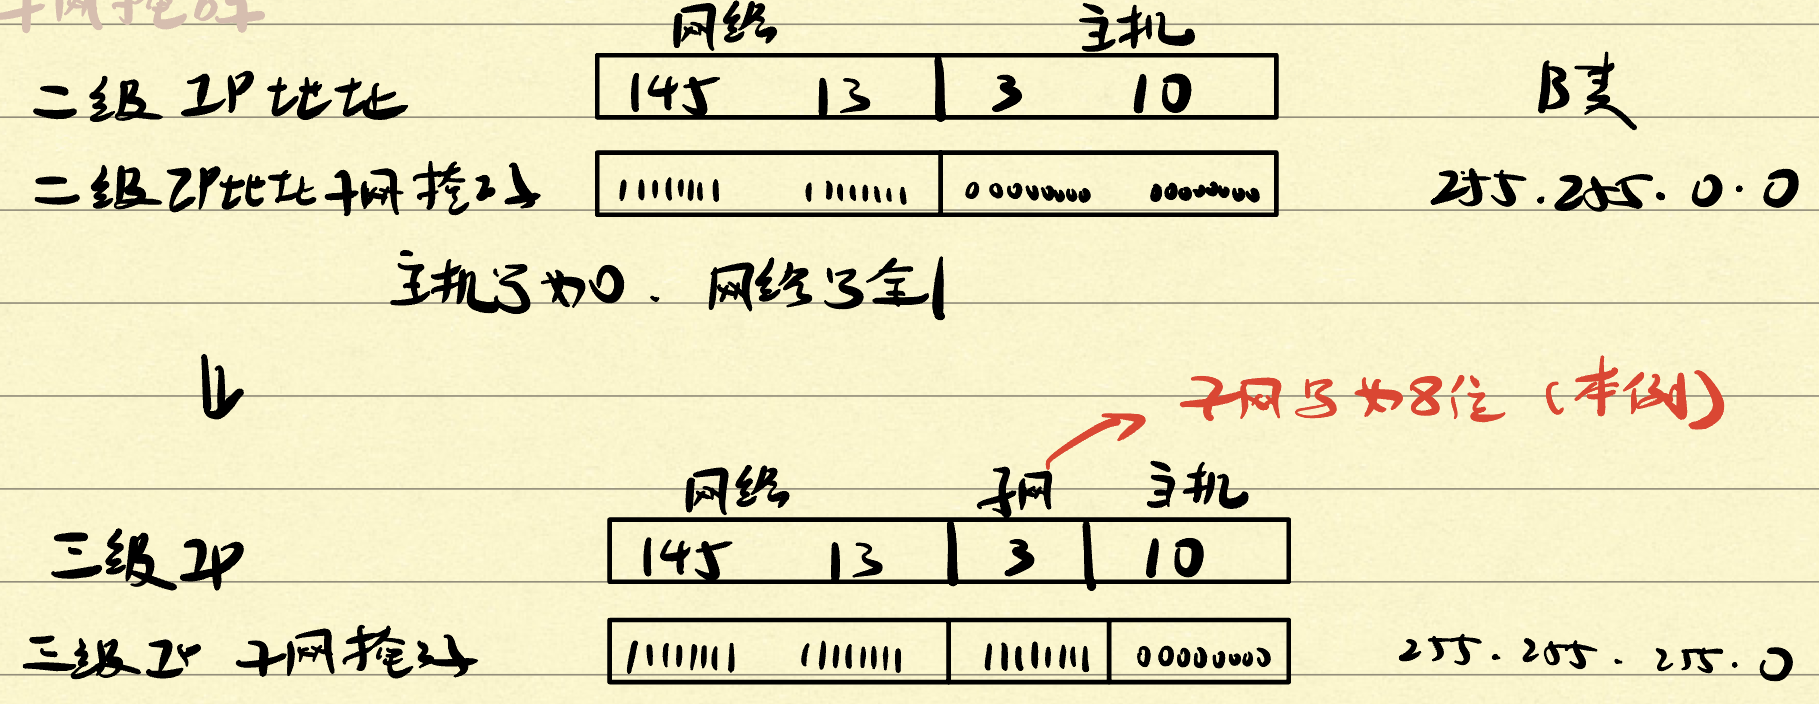 子网掩码
网络 主机
二级 IP地址 145 13 3 10 B类
二级IP地址子网掩码 11111111 11111111 00000000 00000000 255.255.0.0
主机号为0. 网络号全1
子网号为8位 (本例)
网络 子网 主机
三级IP 145 13 3 10
三级IP 子网掩码 11111111 11111111 11111111 00000000 255.255.255.0